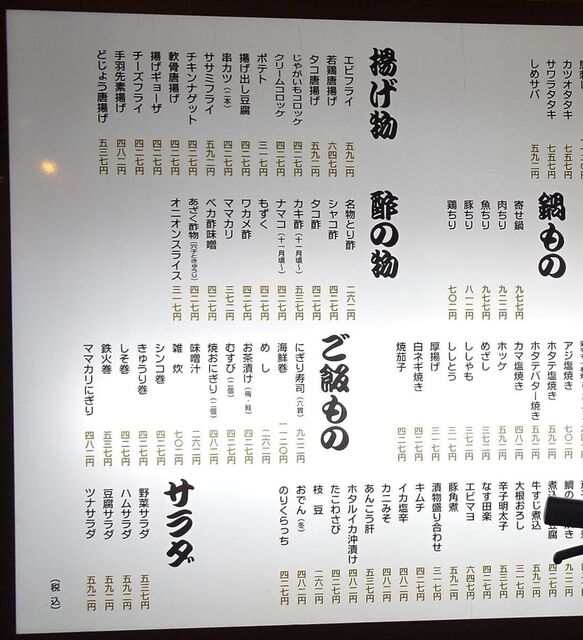 カツオタタキ 七五七円
サワラタタキ 七五七円
しめサバ 五九二円
揚げ物
エビフライ 五九二円
若鶏唐揚げ 六四七円
タコ唐揚げ 五九二円
じゃがいもコロッケ 四二七円
クリームコロッケ 四二七円
ポテト 三一七円
揚げ出し豆腐 四二七円
串カツ(二本) 四二七円
ササミフライ 五九二円
チキンナゲット 四二七円
軟骨唐揚げ 四二七円
揚げギョーザ 四二七円
チーズフライ 四二七円
手羽先素揚げ 四八二円
どじょう唐揚げ 五三七円
鍋もの
寄せ鍋 九七七円
肉ちり 九二二円
魚ちり 九七七円
豚ちり 八一二円
鶏ちり 七〇二円
酢の物
名物とり酢 二六二円
シャコ酢 四二七円
タコ酢 四二七円
カキ酢(十一月頃〜) 五三七円
ナマコ(十一月頃〜) 四二七円
もずく 四二七円
ワカメ酢 四二七円
ママカリ 三七二円
ベカ酢味噌 四二七円
あざく酢物(穴子ときゅうり) 四二七円
オニオンスライス 三一七円
アジ塩焼き 七〇二円
ホタテ塩焼き 五九二円
ホタテバター焼き 五九二円
カマ塩焼き 四二七円
ホッケ 五九二円
めざし 三七二円
ししゃも 三七二円
ししとう 三一七円
厚揚げ 三一七円
白ネギ焼き 四二七円
焼茄子 四二七円
ご飯もの
にぎり寿司(六貫) 九二二円
海鮮巻 一一二〇円
めし 二六二円
お茶漬け(梅・鮭) 四二七円
むすび(二個) 四二七円
焼おにぎり(二個) 四八二円
味噌汁 二六二円
雑炊 七〇二円
シンコ巻 四二七円
きゅうり巻 四二七円
しそ巻 四二七円
鉄火巻 五三七円
ママカリにぎり 四八二円
牛すじ煮込 五九二円
大根おろし 三一七円
辛子明太子 五三七円
なす田楽 四二七円
エビマヨ 六四七円
豚角煮 五九二円
漬物盛り合わせ 三一七円
キムチ 四二七円
イカ塩辛 四八二円
カニみそ 四八二円
あんこう肝 五三七円
ホタルイカ沖漬け 四八二円
たこわさび 四二七円
枝豆 二六二円
おでん(冬) 四八二円
のりくらっち 四二七円
サラダ
野菜サラダ 五三七円
ハムサラダ 五九二円
豆腐サラダ 五九二円
ツナサラダ 五九二円
(税込)